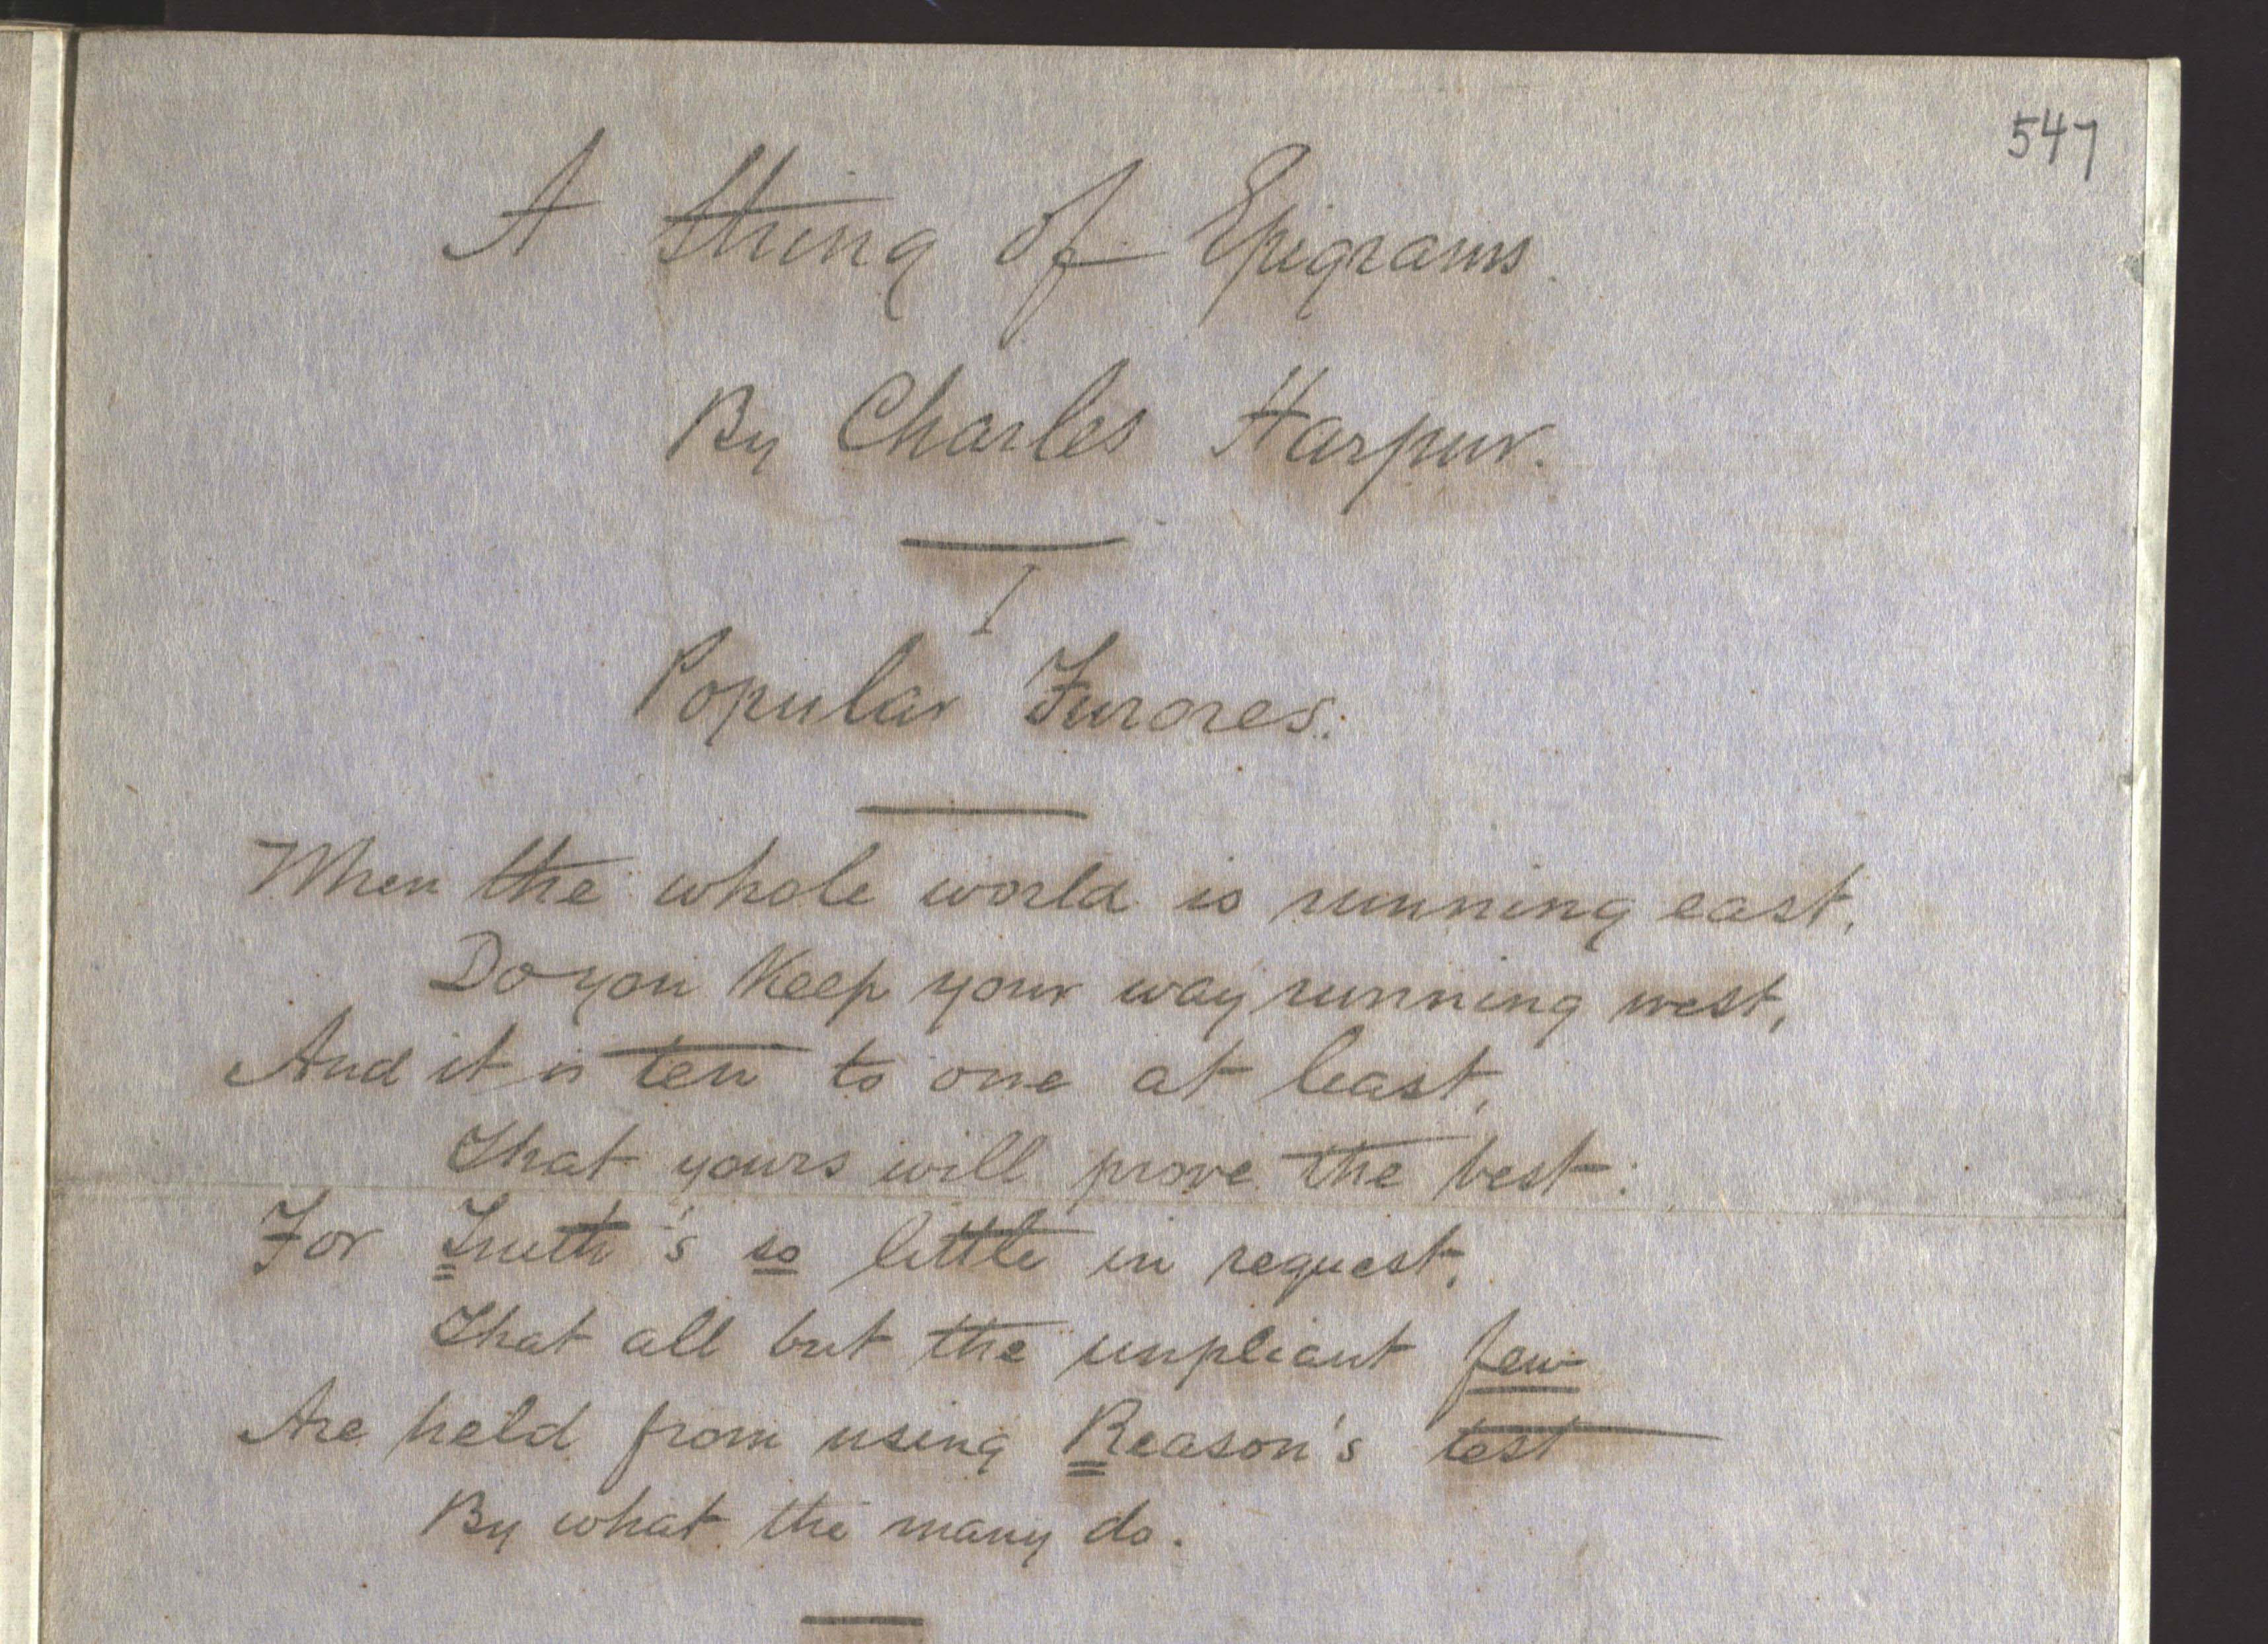 547
A String of Epigrams.
By Charles Harpur.
I
Popular Furores.
When the whole world is running east,
Do you Keep your way running west,
And it is ten to one at least,
That yours will prove the best:
For Trueth's so little in request,
That all but the unpliant few
Are held from using Reason's test
By what the many do.